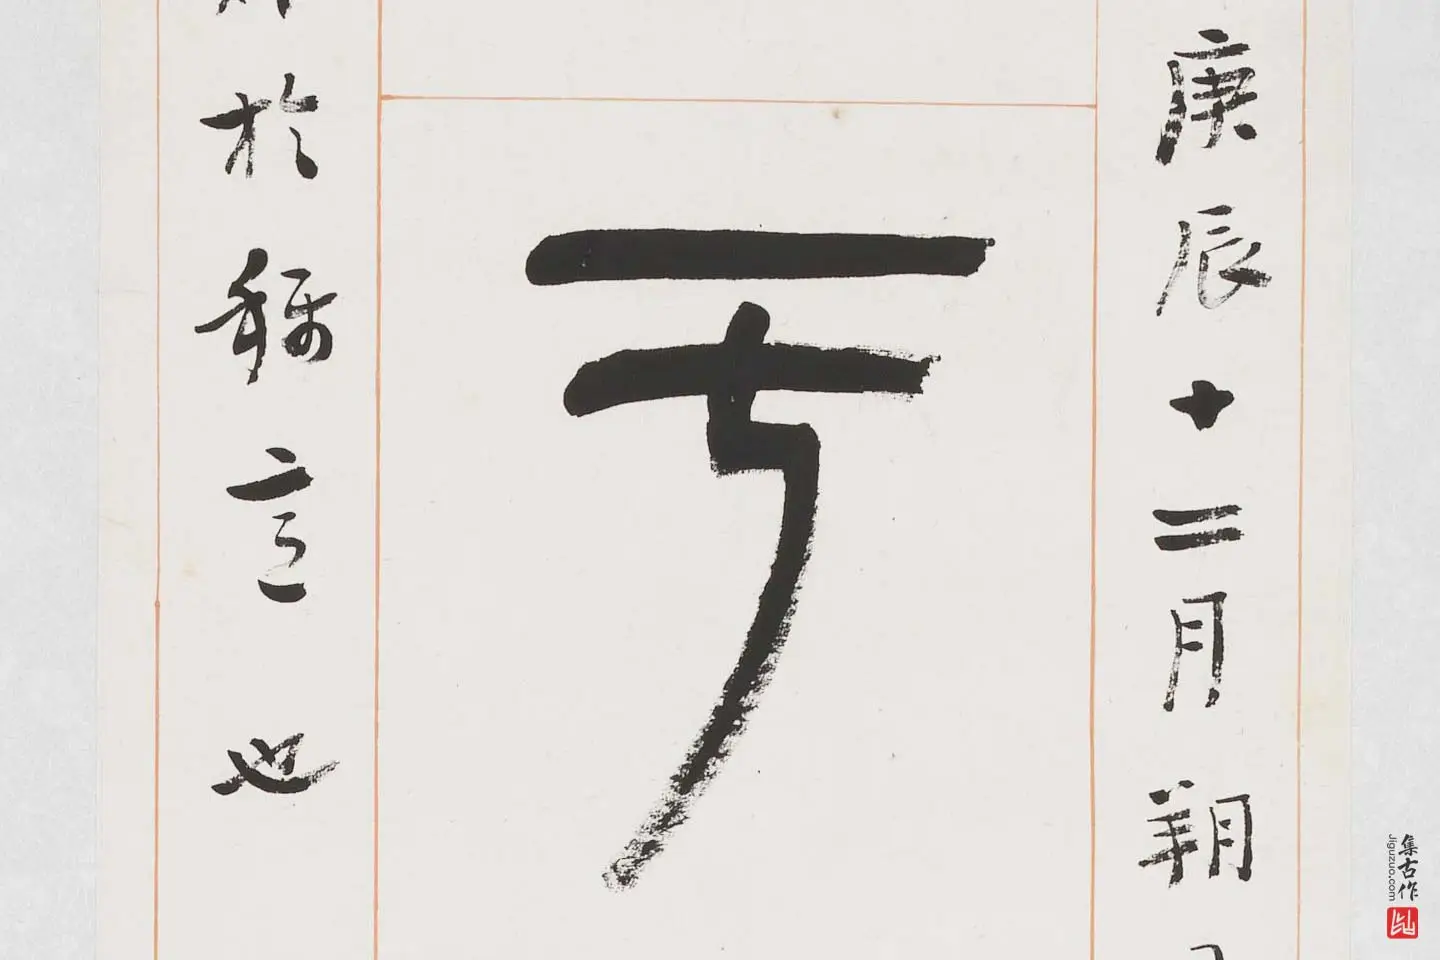 庚辰十二月朔
於稱言也
集古作
jiguzuo.com